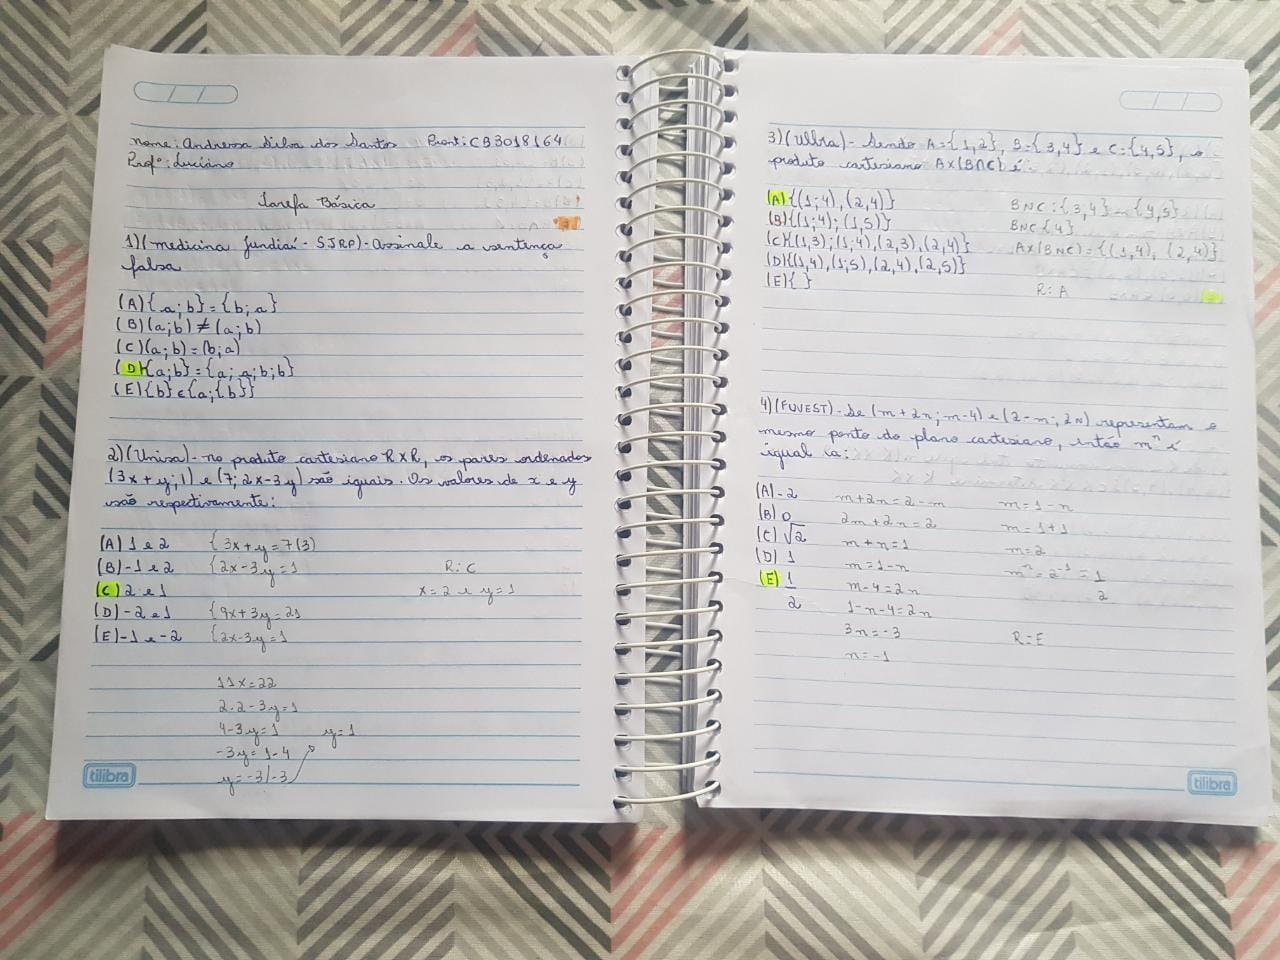 nome: Andressa Silva dos Santos Pront: CB3018164
Profº: Luciano
Tarefa Básica
1) (medicina Jundiaí - SJRP) - Assinale a sentença
falsa
(A) {a;b} = {b;a}
(B) (a;b) ≠ (a;b)
(C) (a;b) = (b;a)
(D) {a;b} = {a;a;b;b}
(E) {b} ∈ {a;{b}}
2) (Unisa) - no produto cartesiano RXR, os pares ordenados
(3x+y;1) e (7;2x-3y) são iguais. Os valores de x e y
são respectivamente:
(A) 1 e 2 { 3x+y=7(3)
(B) -1 e 2 { 2x-3y=1 R: C
(C) 2 e 1 x=2 e y=1
(D) -2 e 1 { 9x+3y=21
(E) -1 e -2 { 2x-3y=1
11x=22
2.2-3y=1
4-3y=1 y=1
-3y=1-4
y=-3/-3
tilibra
3) (Ulbra) - Sendo A={1,2}, B={3,4} e C={4,5}, o
produto cartesiano AX(B∩C) é:
(A) {(1;4),(2,4)} B∩C: {3,4} ∩ {4,5}
(B) {(1;4);(1,5)} B∩C {4}
(C) {(1,3);(1;4),(2,3),(2,4)} AX(B∩C) = {(1,4), (2,4)}
(D) {(1,4),(1;5),(2,4),(2,5)}
(E) { } R: A
4) (FUVEST) - Se (m+2n; m-4) e (2-m; 2n) representam o
mesmo ponto do plano cartesiano, então mⁿ é
igual a:
(A) -2 m+2n=2-m m=1-n
(B) 0 2m+2n=2 m=1+1
(C) √2 m+n=1 m=2
(D) 1 m=1-n mⁿ=2⁻¹=1/2
(E) 1/2 m-4=2n
1-n-4=2n
3n=-3 R=E
n=-1
tilibra